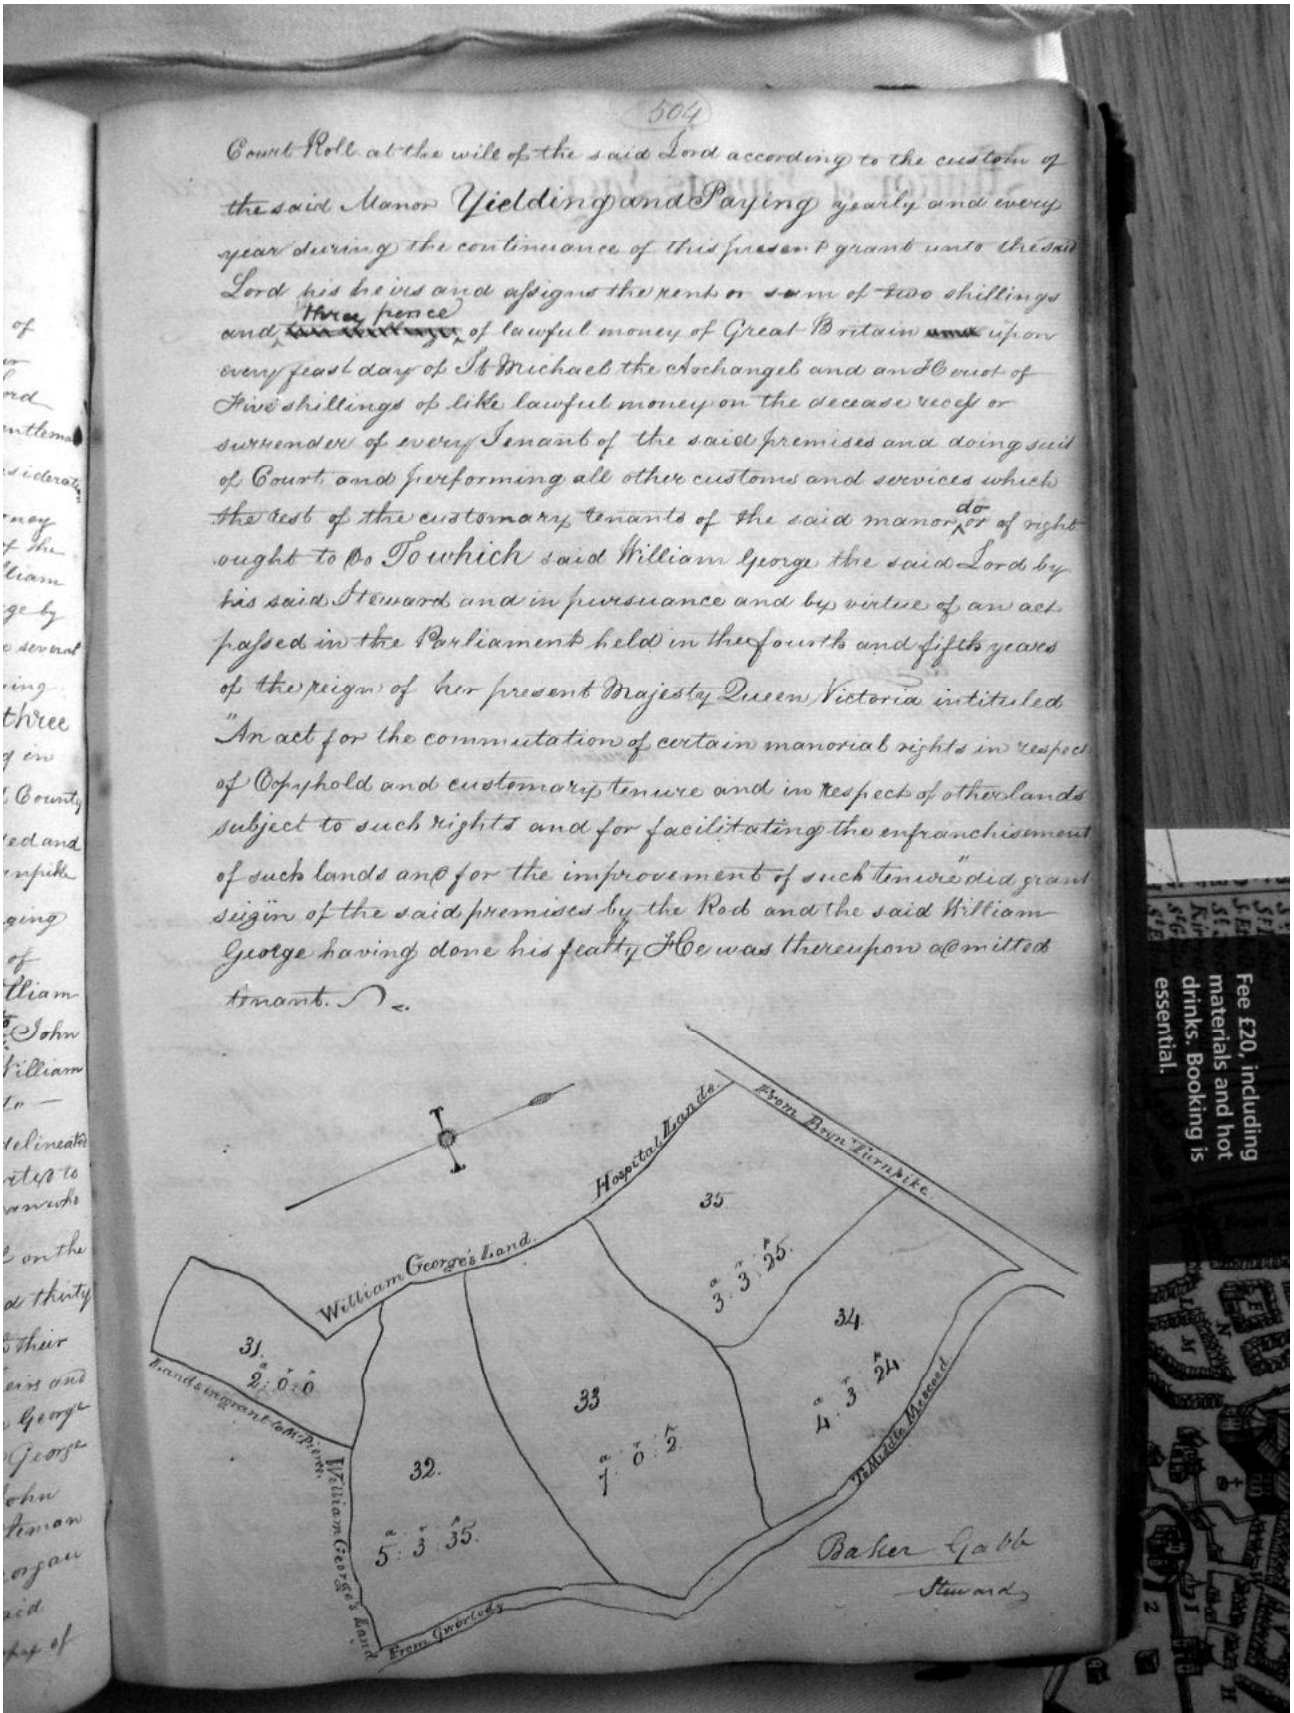 504
Court Roll at the will of the said Lord according to the custom of
the said Manor Yielding and Paying yearly and every
year during the continuance of this present grant unto the said
Lord his heirs and assigns the rent or sum of two shillings
three pence
and of lawful money of Great Britain upon
every feast day of St Michael the Archangel and an Heriot of
Five shillings of like lawful money on the decease recess or
surrender of every Tenant of the said premises and doing suit
of Court and performing all other customs and services which
do
the rest of the customary tenants of the said manor or of right
ought to do To which said William George the said Lord by
his said Steward and in pursuance and by virtue of an act
passed in the Parliament held in the fourth and fifth years
of the reign of her present Majesty Queen Victoria intituled
"An act for the commutation of certain manorial rights in respect
of Copyhold and customary tenure and in respect of other lands
subject to such rights and for facilitating the enfranchisement
of such lands and for the improvement of such tenure" did grant
seizin of the said premises by the Rod and the said William
George having done his fealty He was thereupon admitted
tenant.
From Bryn Turnpike
Hospital Lands.
William George's Land.
35
a r p
3 : 3 : 25.
34.
a r p
4 : 3 : 24
31.
a r p
2 : 0 : 0
Lands in grant to Mr Pierce.
33
a r p
7 : 0 : 2.
32.
a r p
5 : 3 : 35.
William George's Land
To Middle Mescoed
From Gworlody
Baker Gabb
Steward
of
ord
gentleman
siderati
ney
of the
lliam
ge by
e several
ing
three
g in
County
ted and
rnpike
ging
of
lliam
John
William
to —
delineated
an who
on the
d thirty
their
eirs and
George
George
ohn
tleman
organ
aid
of
Fee £20, including
materials and hot
drinks. Booking is
essential.